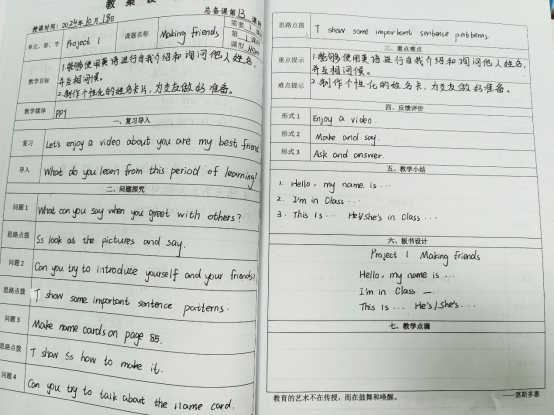 教案设
授课时间: 2024年10月18日
总备课第13课时
单元、章、节 Project 1 课题名称 Making friends
第 1 课时
课型
教学目标
1.能够使用英语进行自我介绍和询问他人姓名,
并互相问候。
2.制作个性化的姓名卡片,为交友做好准备。
教学媒体 PPT
一、复习导入
复习 Let's enjoy a video about you are my best friend
导入 What do you learn from this period of learning?
二、问题探究
问题1 What can you say when you greet with others?
思路点拨 Ss look at the pictures and say.
问题2 Can you try to introduce yourself and your friends?
思路点拨 T show some important sentence patterns.
问题3 Make name cards on page 85.
思路点拨 T show Ss how to make it.
问题4 Can you try to talk about the name card.
思路点拨 T show some important sentence patterns
三、重点难点
重点提示 1.能够使用英语进行自我介绍和询问他人姓名,
并互相问候。
难点提示 2.制作个性化的姓名卡,为交友做好准备。
四、反馈评价
形式1 Enjoy a video.
形式2 Make and say.
形式3 Ask and answer.
五、教学小结
1. Hello, my name is ...
2. I'm in Class ...
3. This is ... He/she's in Class ...
六、板书设计
Project 1 Making friends
Hello, my name is ...
I'm in Class —.
This is ... He's/she's ...
七、教学点滴
教育的艺术不在传授,而在鼓舞和唤醒。 ——第斯多惠